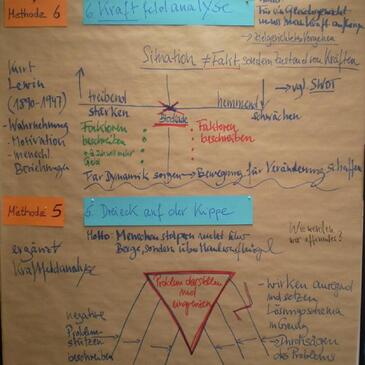 Methode 6
6. Kraftfeldanalyse
Für Gleichgewicht
muss man Kraft aufbringen
→ zielgerichtetes Vorgehen
Situation ≠ Fakt, sondern Zustand von Kräften
Kurt
Lewin
(1890-1947)
- Wahrnehmung
- Motivation
- menschl.
Beziehungen
↑ treibend
stärken
hemmend ↓
schwächen
→ vgl. SWOT
Blockade
Faktoren
beschreiben
Faktoren
beschreiben
Für Dynamik sorgen → Bewegung für Veränderung schaffen
Methode 5
5. Dreieck auf der Kippe
Motto: Menschen stolpern nicht über
Berge, sondern über Maulwurfhügel
ergänzt
Kraftfeldanalyse
Problem darstellen
und
eingrenzen
negative
Problem-
stützen
beschreiben
- wirken auslösend
und setzen
Lösungsschema
in Gang
des Problems